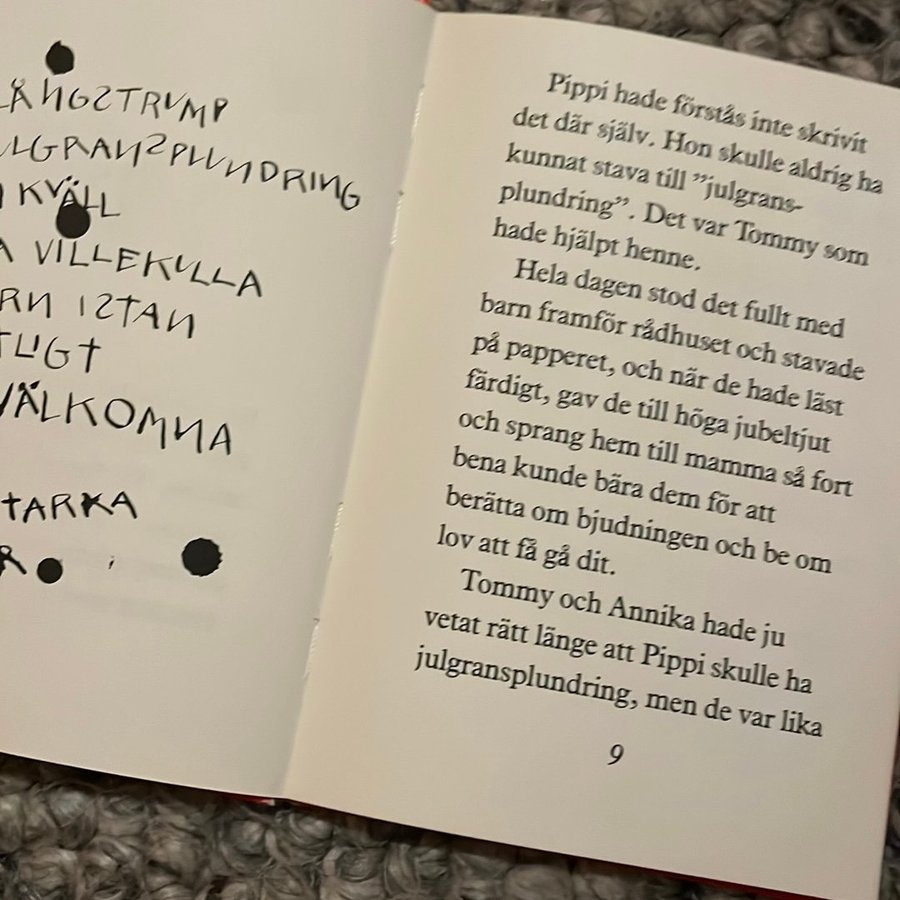 LÄNGSTRUMP
ULGRANSPLUNDRING
I KVÄLL
A VILLEKULLA
RN ISTAN
TLIGT
VÄLKOMNA
TARKA
R
Pippi hade förstås inte skrivit
det där själv. Hon skulle aldrig ha
kunnat stava till ”julgrans-
plundring”. Det var Tommy som
hade hjälpt henne.
Hela dagen stod det fullt med
barn framför rådhuset och stavade
på papperet, och när de hade läst
färdigt, gav de till höga jubeltjut
och sprang hem till mamma så fort
bena kunde bära dem för att
berätta om bjudningen och be om
lov att få gå dit.
Tommy och Annika hade ju
vetat rätt länge att Pippi skulle ha
julgransplundring, men de var lika
9